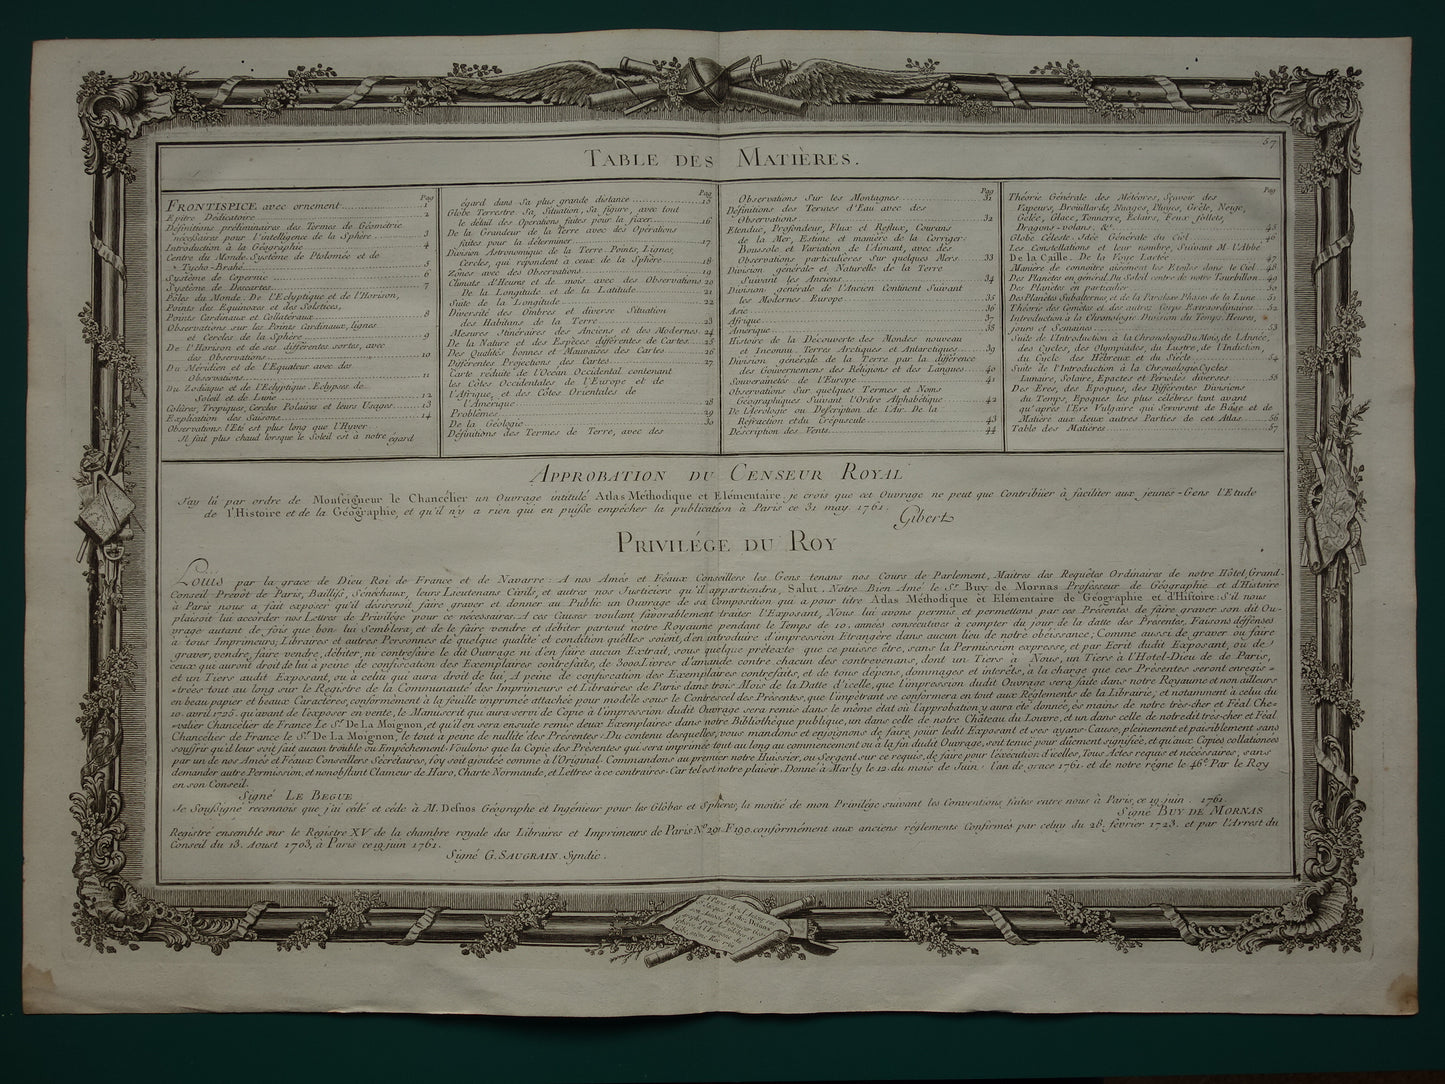 57
TABLE DES MATIÈRES.
Pag
FRONTISPICE avec ornement 1
Epître Dédicatoire 2
Définitions préliminaires des Termes de Géométrie
nécessaires pour l'intelligence de la Sphère 3
Introduction à la Géographie 4
Centre du Monde. Systême de Ptolomée et de
Tycho-Brahé 5
Systême de Copernic 6
Systême de Descartes 7
Pôles du Monde. De l'Ecliptique et de l'Horison,
Points des Equinoxes et des Solstices,
Points Cardinaux et Collatéraux 8
Observations sur les Points Cardinaux, lignes
et Cercles de la Sphère 9
De l'Horison et de ses différentes sortes, avec
des Observations 10
Du Méridien et de l'Equateur avec des
Observations 11
Du Zodiaque et de l'Eclyptique. Eclypses de
Soleil et de Lune 12
Colûres, Tropiques, Cercles Polaires et leurs Usages 13
Explication des Saisons 14
Observations l'Eté est plus long que l'Hyver.
Il fait plus chaud lorsque le Soleil est à notre égard
Pag
égard dans Sa plus grande distance 15
Globe Terrestre Sa Situation, Sa figure, avec tout
le détail des Opérations faites pour la fixer 16
De la Grandeur de la Terre avec des Opérations
faites pour la déterminer 17
Division Astronomique de la Terre. Points, Lignes,
Cercles, qui répondent à ceux de la Sphère 18
Zônes avec des Observations 19
Climats d'Heures et de mois avec des Observations 20
De la Longitude et de la Latitude 21
Suite de la Longitude 22
Diversité des Ombres et diverse Situation
des Habitans de la Terre 23
Mesures Itinéraires des Anciens et des Modernes 24
De la Nature et des Espèces différentes de Cartes 25
Des Qualités bonnes et Mauvaises des Cartes 26
Différentes Projections des Cartes 27
Carte réduite de l'Océan Occidental contenant
les Côtes Occidentales de l'Europe et de
l'Afrique, et des Côtes Orientales de
l'Amérique 28
Problêmes 29
De la Géologie 30
Définitions des Termes de Terre, avec des
Pag
Observations Sur les Montagnes 31
Définitions des Termes d'Eau avec des
Observations 32
Etendue, Profondeur, Flux et Reflux, Courans
de la Mer, Estime et manière de la Corriger.
Boussole et Variation de l'Aimant, avec des
Observations particulières Sur quelques Mers 33
Division générale et Naturelle de la Terre
Suivant les Anciens 34
Division générale de l'Ancien Continent Suivant
les Modernes. Europe 35
Asie 36
Afrique 37
Amérique 38
Histoire de la Découverte des Mondes nouveau
et Inconnu. Terres Arctiques et Antarctiques 39
Division générale de la Terre par la différence
des Gouvernemens des Religions et des Langues 40
Souverainetés de l'Europe 41
Observations Sur quelques Termes et Noms
Géographiques Suivant l'Ordre Alphabétique 42
De l'Aërologie ou Description de l'Air. De la
Réfraction et du Crépuscule 43
Description des Vents 44
Pag
Théorie Générale des Météores, Sçavoir des
Vapeurs, Brouillards, Nuages, Pluyes, Grêle, Neige,
Gelée, Glace, Tonnerre, Eclairs, Feux follets,
Dragons-volans, &c. 45
Globe Céleste. Idée Générale du Ciel 46
Les Constellations et leur nombre, Suivant M. l'Abbé
De la Caille. De la Voye Lactée 47
Manière de connoître aisément les Etoiles dans le Ciel 48
Des Planetes en général, Du Soleil contre de notre Tourbillon 49
Des Planetes en particulier 50
Des Planetes Subalternes et de la Paralaxe. Phases de la Lune 51
Théorie des Cometes et des autres Corps Extraordinaires 52
Introduction à la Chronologie. Division du Temps. Heures,
jours et Semaines 53
Suite de l'Introduction à la Chronologie. Du Mois, de l'Année,
des Cycles, des Olympiades, du Lustre, de l'Indiction,
du Cycle des Hébreux et du Siècle 54
Suite de l'Introduction à la Chronologie. Cycles
Lunaire, Solaire, Epactes et Périodes diverses 55
Des Eres, des Epoques, des Différentes Divisions
du Temps, Epoques les plus célèbres tant avant
qu'après l'Ere Vulgaire qui Serviront de Bâse et de
Matière aux deux autres Parties de cet Atlas 56
Table des Matières 57
APPROBATION DU CENSEUR ROYAL
J'ay lû par ordre de Monseigneur le Chancelier un Ouvrage intitulé Atlas Méthodique et Elémentaire. je crois que cet Ouvrage ne peut que Contribüer à faciliter aux jeunes-Gens l'Etude
de l'Histoire et de la Géographie, et qu'il n'y a rien qui en puisse empêcher la publication à Paris ce 31 may. 1761.
Gibert
PRIVILÉGE DU ROY
Loüis par la grace de Dieu Roi de France et de Navarre: A nos Amés et Féaux Conseillers les Gens tenans nos Cours de Parlement, Maitres des Requêtes Ordinaires de notre Hôtel Grand-
Conseil Prévôt de Paris, Baillifs, Sénéchaux, leurs Lieutenans Civils, et autres nos Justiciers qu'il appartiendra, Salut. Notre Bien Amé le Sr. Buy de Mornas Professeur de Géographie et d'Histoire
à Paris nous a fait exposer qu'il désireroit faire graver et donner au Public un Ouvrage de sa Composition qui a pour titre Atlas Méthodique et Elémentaire de Géographie et d'Histoire. S'il nous
plaisoit lui accorder nos Lettres de Privilége pour ce nécessaires. A ces Causes voulant favorablement traiter l'Exposant, Nous lui avons permis et permettons par ces Présentes de faire graver son dit Ou-
vrage autant de fois que bon lui Semblera, et de le faire vendre et débiter partout notre Royaume pendant le Temps de 10. années consécutives à compter du jour de la datte des Présentes, Faisons déffenses
à tous Imprimeurs, Libraires et autres Personnes de quelque qualité et condition qu'elles soient, d'en introduire d'impression Etrangère dans aucun lieu de notre obeissance; Comme aussi de graver ou faire
graver, vendre, faire vendre, débiter, ni contrefaire le dit Ouvrage ni d'en faire aucun Extrait, sous quelque prétexte que ce puisse être, sans la Permission expresse, et par Ecrit dudit Exposant, ou de
ceux qui auront droit de lui à peine de confiscation des Exemplaires contrefaits, de 3000. Livres d'amande contre chacun des contrevenans, dont un Tiers à Nous, un Tiers à l'Hotel-Dieu de Paris,
et un Tiers audit Exposant, ou à celui qui aura droit de lui, A peine de confiscation des Exemplaires contrefaits, et de tous dépens, dommages et interêts, à la charge que ces Présentes seront enregis-
-trées tout au long sur le Registre de la Communauté des Imprimeurs et Libraires de Paris dans trois Mois de la Datte d'icelle, que l'impression dudit Ouvrage sera faite dans notre Royaume et non ailleurs
en beau papier et beaux Caractères, conformément à la feuille imprimée attachée pour modèle sous le Contrescel des Présentes, que l'impétrant se conformera en tout aux Réglements de la Librairie, et notamment à celui du
10. avril 1725. qu'avant de l'exposer en vente, le Manuscrit qui aura servi de Copie à l'impression dudit Ouvrage sera remis dans le même état où l'approbation y aura été donnée, ès mains de notre très-cher et Féal Che-
valier Chancelier de France Le Sr. De La Moignon, et qu'il en sera ensuite remis deux Exemplaires dans notre Bibliothéque publique, un dans celle de notre Château du Louvre, et un dans celle de notredit très-cher et Féal
Chancelier de France le Sr. De La Moignon, le tout à peine de nullité des Présentes: Du contenu desquelles, vous mandons et enjoignons de faire jouir ledit Exposant et ses ayans-Cause, pleinement et paisiblement sans
souffrir qu'il leur soit fait aucun trouble ou Empêchement. Voulons que la Copie des Présentes qui sera imprimée tout au long au commencement ou à la fin dudit Ouvrage, soit tenüe pour dûement signifiée, et qu'aux Copies collationées
par un de nos Amés et Féaux Conseillers Sécretaires, foy soit ajoutée comme à l'Original. Commandons au premier notre Huissier, ou Sergent sur ce requis, de faire pour l'éxécution d'icelles, Tous Actes requis et nécéssaires, sans
demander autre Permission, et nonobstant Clameur de Haro, Charte Normande, et Lettres à ce contraires. Car tel est notre plaisir. Donné à Marly le 12. du mois de Juin. l'an de grace 1761. et de notre régne le 46e. Par le Roy
en son Conseil.
Signé LE BEGUE
Je Soussigné reconnois que j'ai cédé et cède à M. Desnos Géographe et Ingénieur pour les Globes et Spheres, la moitié de mon Privilége suivant les Conventions faites entre nous à Paris, ce 19 juin. 1761.
Signé BUY DE MORNAS
Registré ensemble sur le Registre XV de la chambre royale des Libraires et Imprimeurs de Paris No. 291. F 190. conformément aux anciens réglements Confirmés par celuy du 28. fevrier 1723. et par l'Arrest du
Conseil du 13. Aoust 1703, à Paris ce 19 juin 1761.
Signé G. SAUGRAIN. Syndic.